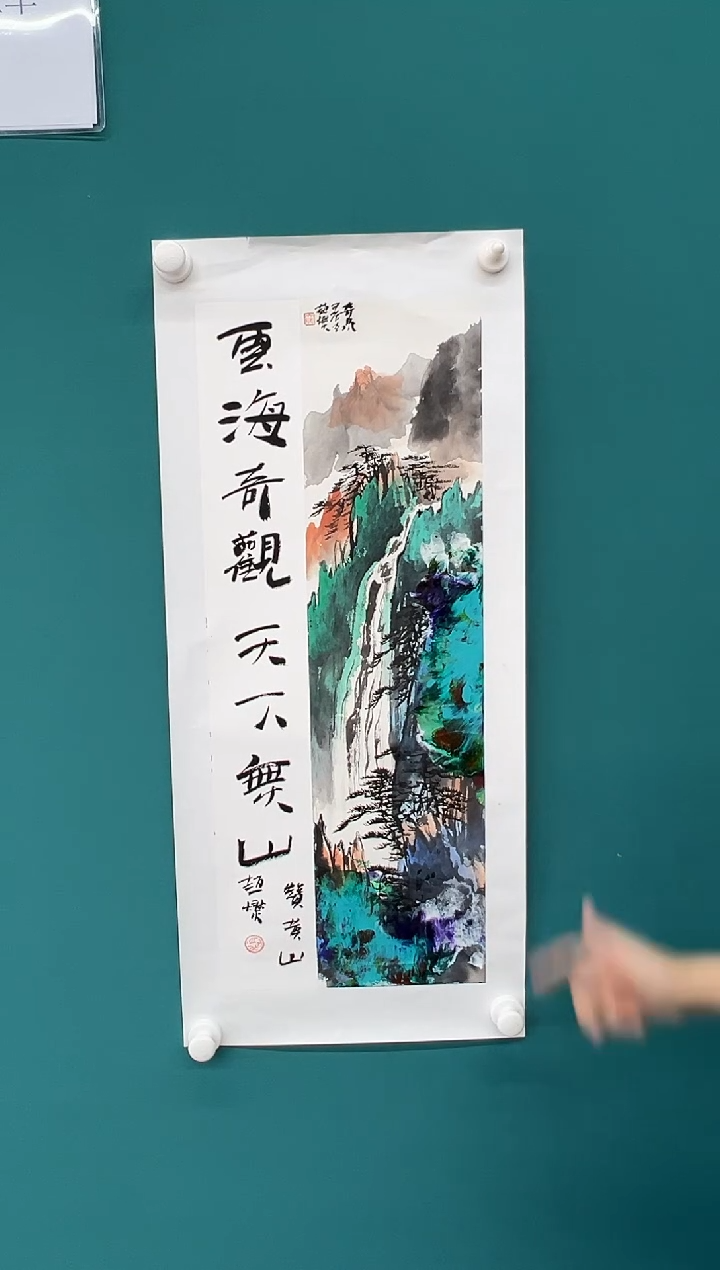 雲海奇觀 天下無山
贊黃山
趙懋